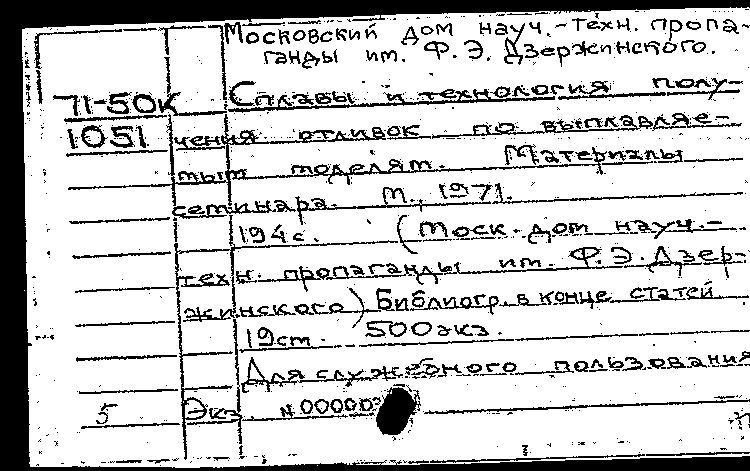 Московский дом науч.-техн. пропа-
ганды им. Ф.Э. Дзержинского.
71-50К Сплавы и технология полу-
1051 чения отливок по выплавляе-
мым моделям. Материалы
семинара. М., 1971.
194с. (Моск. дом науч.-
техн. пропаганды им. Ф.Э. Дзер-
жинского) Библиогр. в конце статей
19ст. 500экз.
Для служебного пользования
5 Экз. №